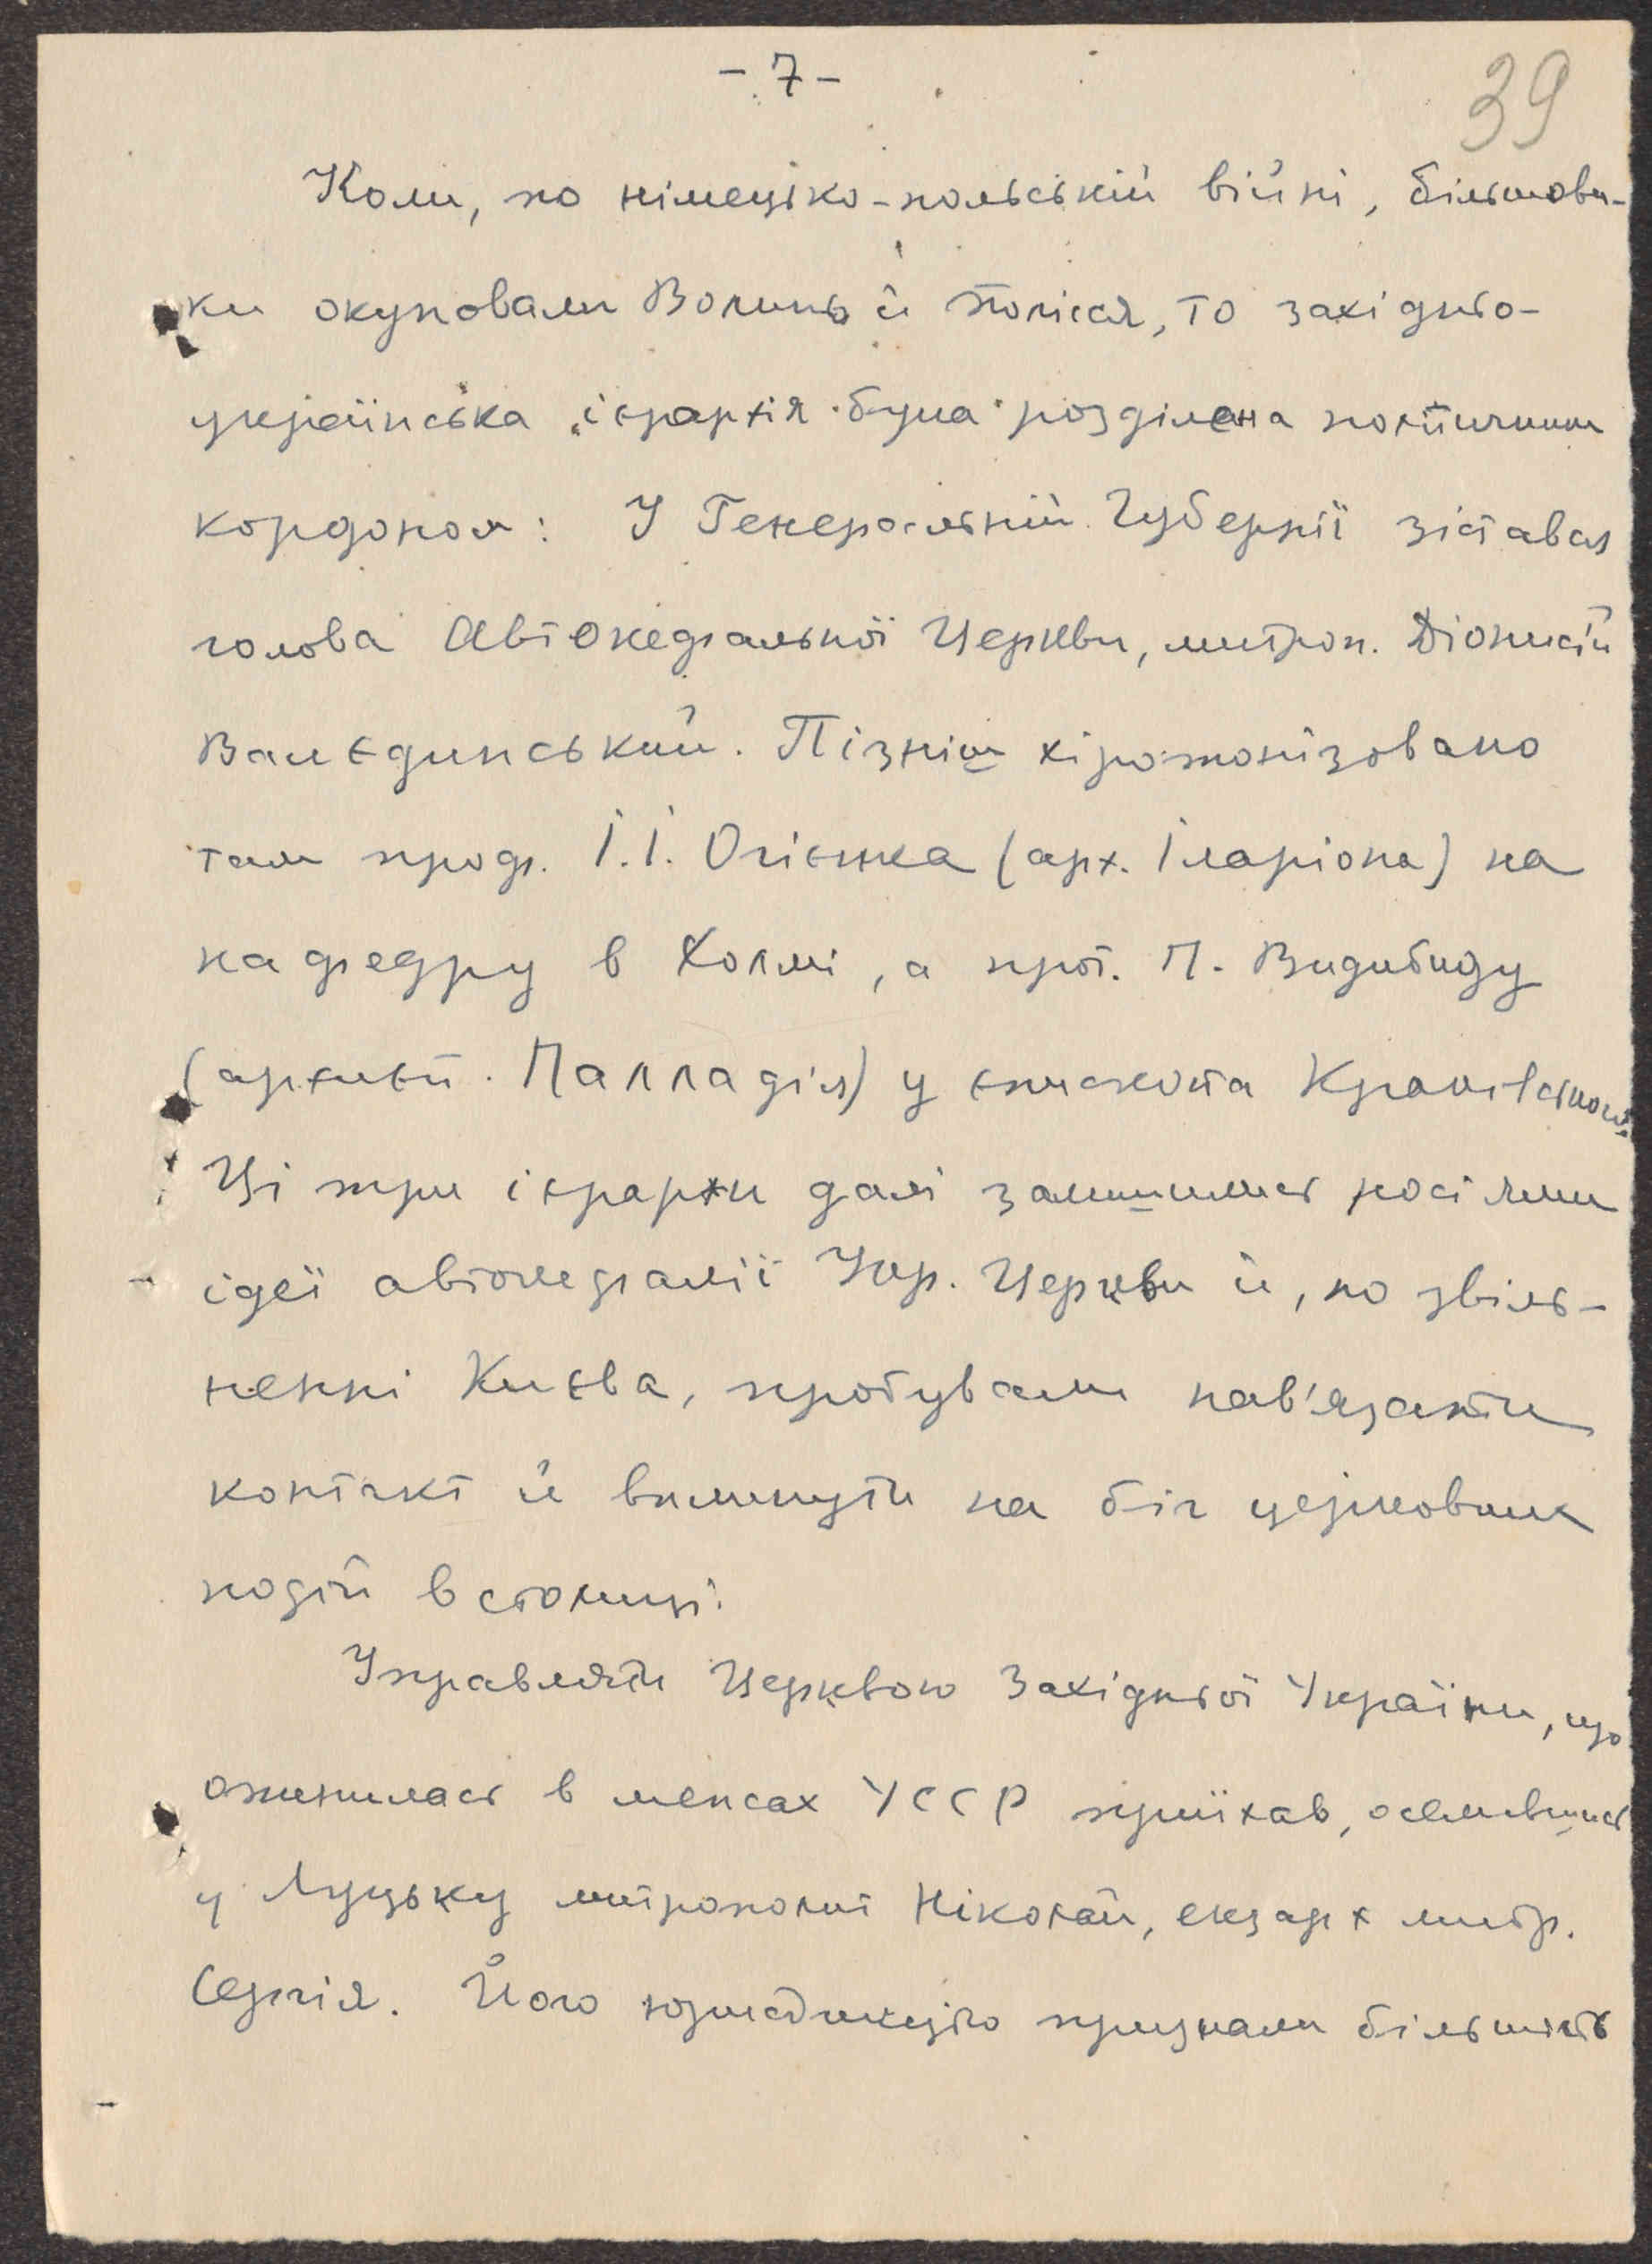 - 7 -
39
Коли, по німецько-польській війні, більшови-
ки окупували Волинь й Полісся, то західньо-
українська ієрархія була розділена політичним
кордоном: У Генеральній Губернії зістався
голова Автокефальної Церкви, митроп. Діонисій
Валєдинський. Пізніш хіротонізовано
там проф. І.І. Огієнка (арх. Іларіона) на
кафедру в Холмі, а прот. П. Видибиду
(архиєп. Палладія) у єпископа Краківського.
Ці три ієрархи далі залишились носіями
ідеї автокефалії Укр. Церкви й, по звіль-
ненні Києва, пробували нав'язати
контакт й вплинути на біг церковних
подій в столиці.
Управляти Церквою Західньої України, що
опинилась в межах УССР приїхав, оселившись
у Луцьку митрополит Ніколай, екзарх митр.
Сергія. Його юрисдикцію признали більшість